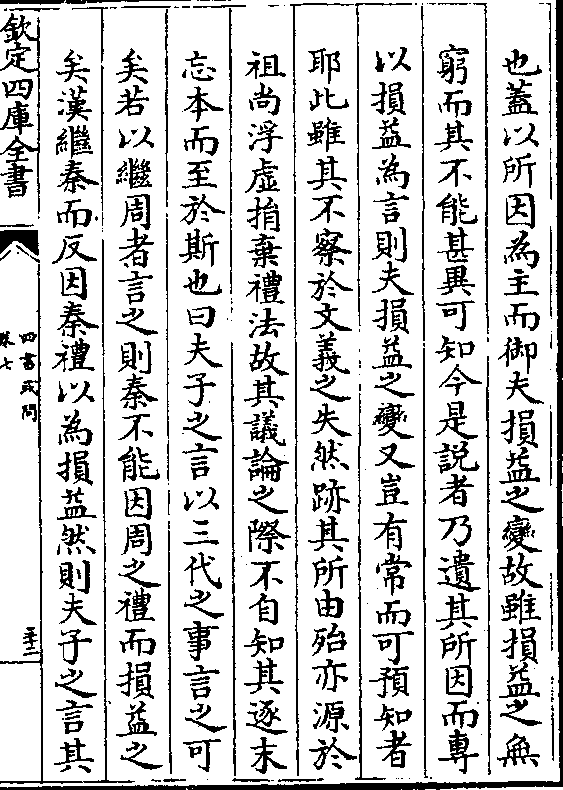 也蓋以所因為主而御夫損益之變故雖損益之無
窮而其不能甚異可知今是説者乃遺其所因而専
以損益為言則夫損益之變又豈有常而可預知者
耶此雖其不察於文義之失然跡其所由殆亦源於
祖尚浮虚捐棄禮法故其議論之際不自知其逐末
忘本而至於斯也曰夫子之言以三代之事言之可
矣若以繼周者言之則秦不能因周之禮而損益之
矣漢繼秦而反因秦禮以為損益然則夫子之言其
欽定四庫全書
四書或問
卷七